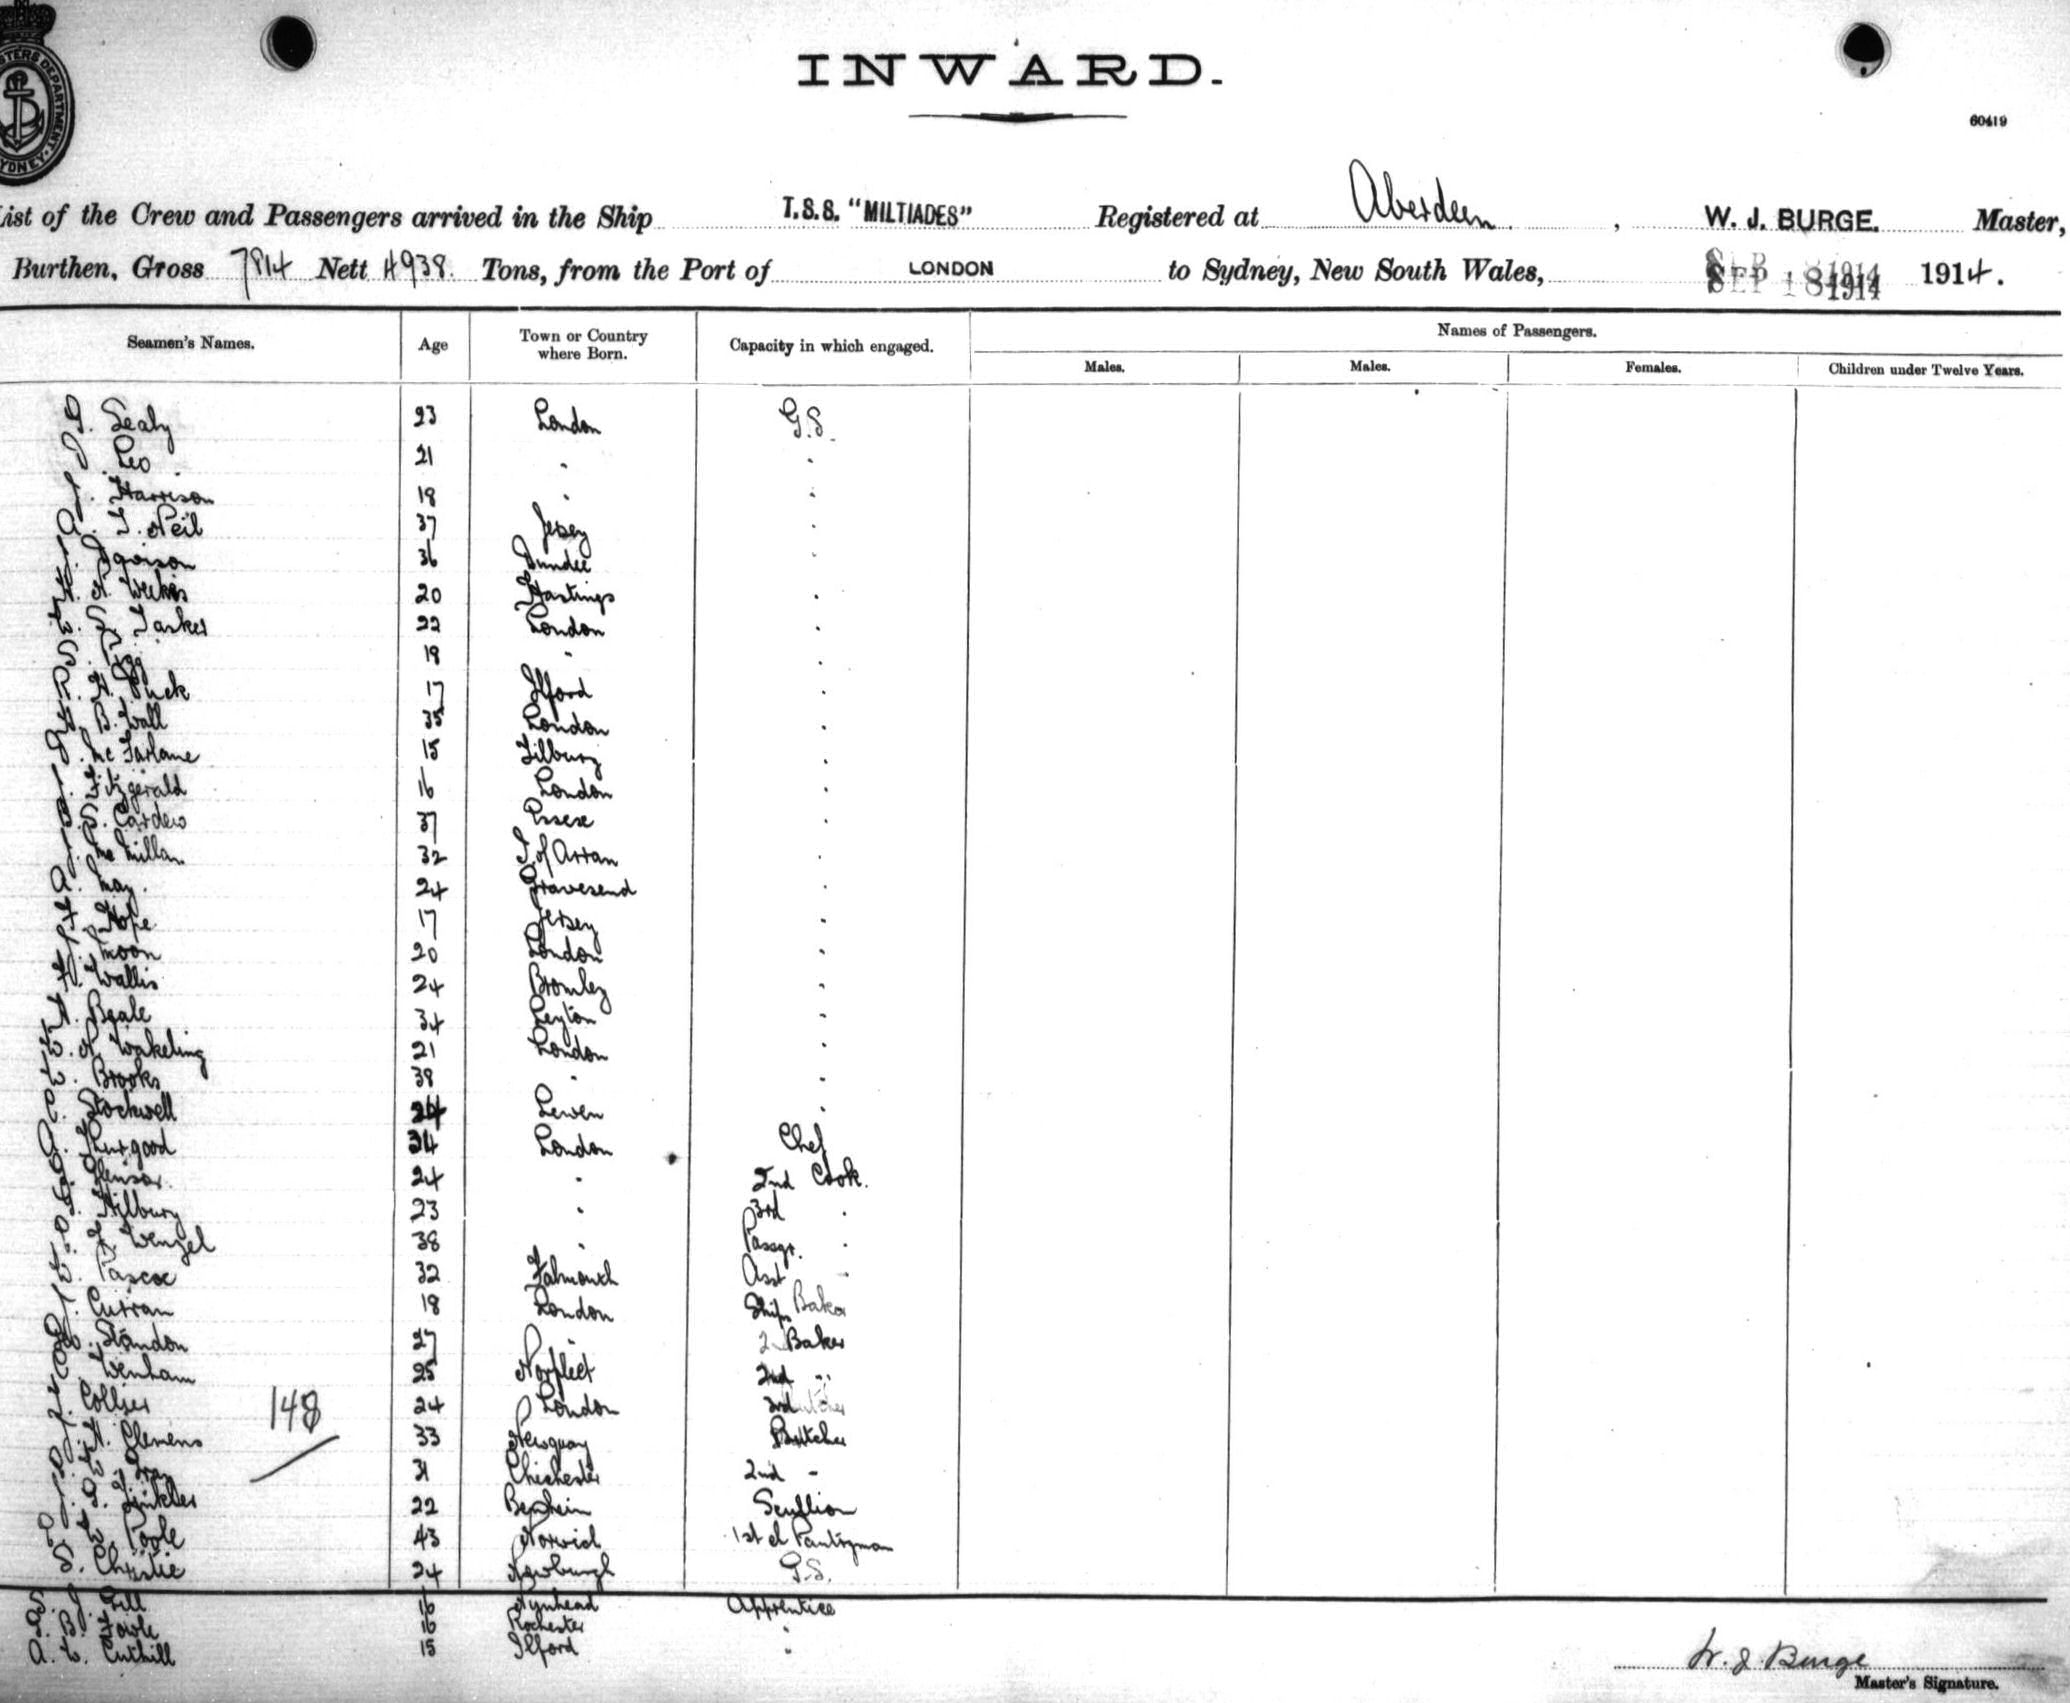 INWARD.
60419
List of the Crew and Passengers arrived in the Ship T.S.S. "MILTIADES" Registered at Aberdeen, W. J. BURGE. Master,
Burthen, Gross 7814 Nett 4938. Tons, from the Port of LONDON to Sydney, New South Wales, SEP 18 1914 1914.
Seamen's Names. Age Town or Country where Born. Capacity in which engaged. Names of Passengers.
Males. Males. Females. Children under Twelve Years.
G. Sealy 23 London G.S.
Leo 21 " "
J. Harrison 18 " "
A. T. Neil 37 Jersey "
J. Davison 36 Dundee "
H. A. Weekes 20 Hastings "
W. Tasker 22 London "
S. 18 " "
H. Puck 17 Ilford "
H. B. Wall 35 London "
McFarlane 15 Tilbury "
J. Fitzgerald 16 London "
S. Cardew 37 Essex "
J. McMillan 32 I. of Arran "
A. May. 24 Gravesend "
H. Hope 17 Jersey "
J. Moon 20 London "
F. Wallis 24 Bromley "
H. Beale 34 Leyton "
W. A. Wakeling 21 London "
W. Brooks 38 " "
Stockwell 24 "
A. Thurgood 34 London Chef
24 " 2nd Cook.
Hilbury 23 " 3rd "
Wenzel 38 " Passgr. "
W. Pascoe 32 Falmouth Asst "
J. Curran 18 London Ships Baker
Standon 27 " 2 Baker
Wenham 25 Norfleet 2nd "
Collyer 24 London 3rd
148
H. Clemens 33 Newquay Butcher
Gray 31 Chichester 2nd "
Tinkler 22 Scullion
W. Poole 43 Norwich 1st cl Pantryman
S. Christie 24 Newburgh G.S.
S. J. Gill 16 Nynhead Apprentice
B. Fowle 16 Rochester "
A. W. Cuthill 15 Ilford "
W. J. Burge
Master's Signature.